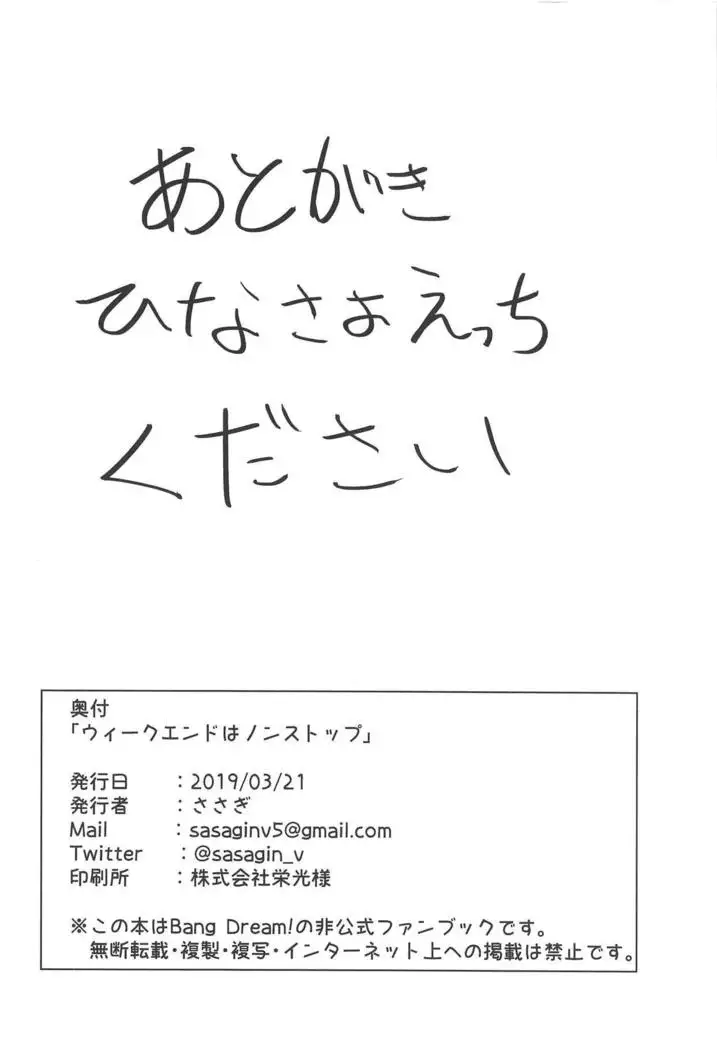 あとがき
ひなさよえっち
ください
奥付
「ウィークエンドはノンストップ」
発行日　：2019/03/21
発行者　：ささぎ
Mail　：sasaginv5@gmail.com
Twitter　：@sasagin_v
印刷所　：株式会社栄光様
※この本はBang Dream!の非公式ファンブックです。
無断転載・複製・複写・インターネット上への掲載は禁止です。